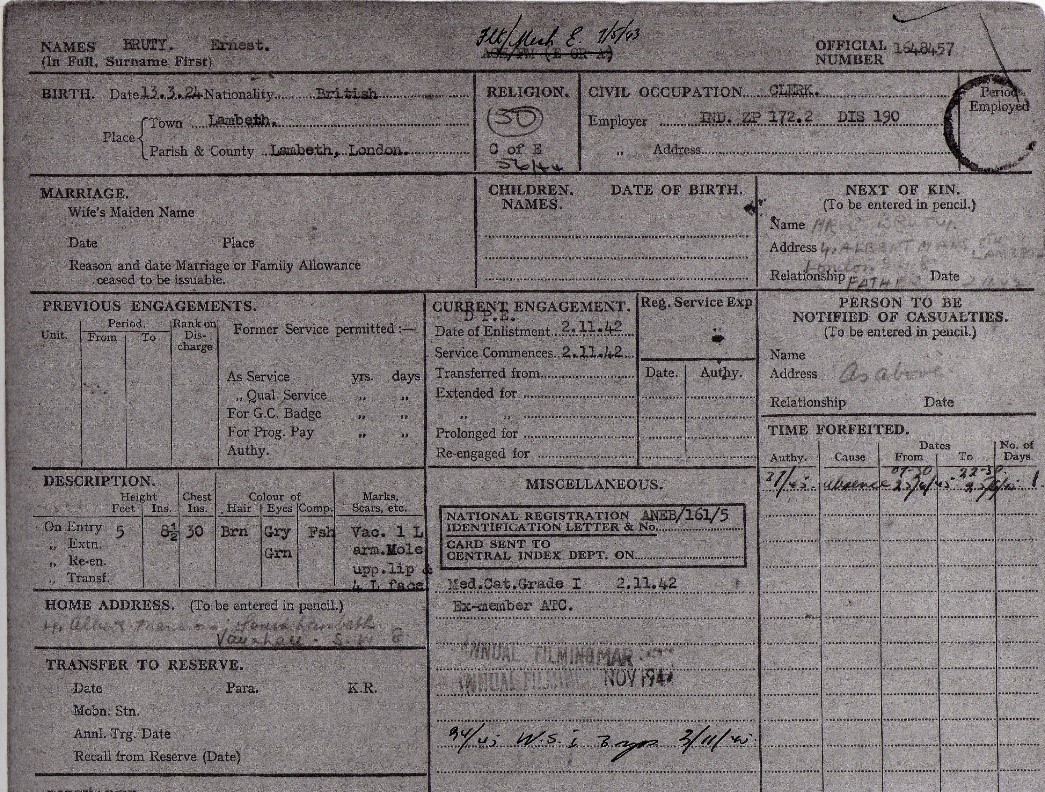 NAMES BRUTY. Ernest.
(In Full, Surname First)
Flt/Mech E 7/5/43
OFFICIAL NUMBER 1648457
BIRTH. Date 13.3.24 Nationality British
Place { Town Lambeth.
Parish & County Lambeth, London.
RELIGION.
30
C of E
56/44
CIVIL OCCUPATION CLERK.
Employer IND. ZP 172.2 DIS 190
„ Address
Period Employed
MARRIAGE.
Wife's Maiden Name
Date Place
Reason and date Marriage or Family Allowance
ceased to be issuable.
CHILDREN. DATE OF BIRTH.
NAMES.
NEXT OF KIN.
(To be entered in pencil.)
Name MR BRUTY.
Address 4, ALBERT MANS STH LAMBETH
Relationship FATHER Date
PREVIOUS ENGAGEMENTS.
Unit. Period. From To Rank on Discharge
Former Service permitted :—
As Service yrs. days
„ Qual. Service „ „
For G.C. Badge „ „
For Prog. Pay „ „
Authy.
CURRENT ENGAGEMENT.
D P.E.
Date of Enlistment 2.11.42
Service Commences 2.11.42
Transferred from
Extended for
„ „
Prolonged for
Re-engaged for
Reg. Service Exp
Date. Authy.
PERSON TO BE
NOTIFIED OF CASUALTIES.
(To be entered in pencil.)
Name
Address As above
Relationship Date
TIME FORFEITED.
Authy. Cause Dates From To No. of Days.
27/45 absence 07.30 22.30 1
DESCRIPTION.
Height Feet Ins. Chest Ins. Colour of Hair Eyes Comp. Marks, Scars, etc.
On Entry 5 8½ 30 Brn Gry Fsh Vac. 1 L
„ Extn. Grn arm.Mole
„ Re-en. upp.lip &
„ Transf. 4 L face
MISCELLANEOUS.
NATIONAL REGISTRATION ANEB/161/5
IDENTIFICATION LETTER & No.
CARD SENT TO
CENTRAL INDEX DEPT. ON
Med.Cat.Grade I 2.11.42
Ex-member ATC.
ANNUAL FILMING MAR
ANNUAL FILMING NOV 194
94/45 W.S. 2/11/45
HOME ADDRESS. (To be entered in pencil.)
Albert Mansions, South Lambeth
Vauxhall - S.W. 8
TRANSFER TO RESERVE.
Date Para. K.R.
Mobn. Stn.
Annl. Trg. Date
Recall from Reserve (Date)